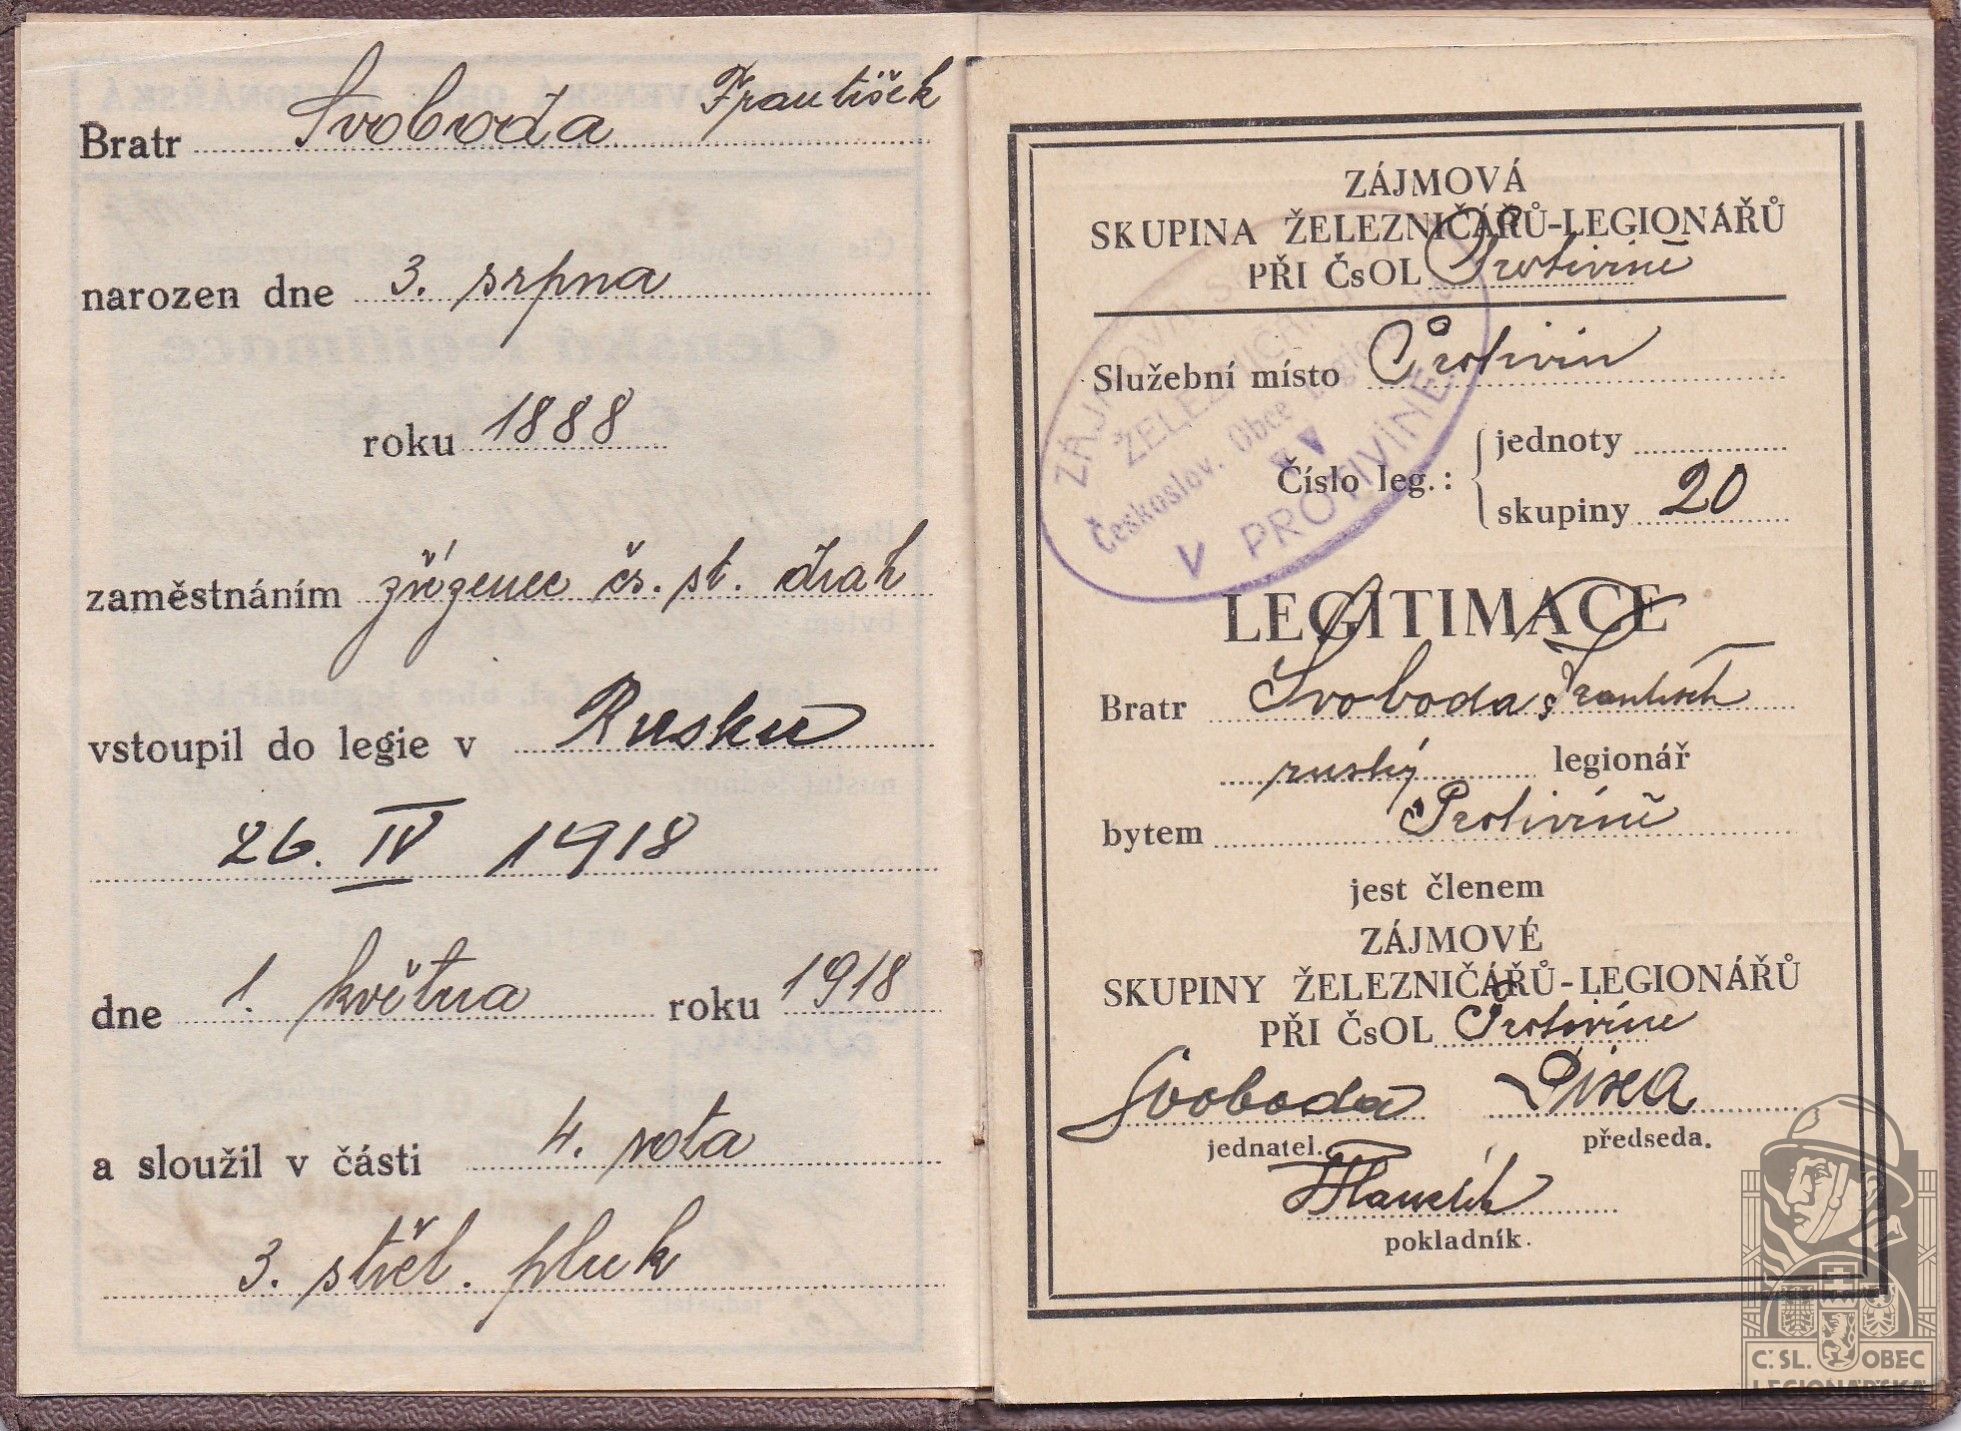 František
Bratr Svoboda
narozen dne 3. srpna
roku 1888
zaměstnáním zřízenec čs. st. drah
vstoupil do legie v Rusku
26. IV 1918
dne 1. května roku 1918
a sloužil v části 4. rota
3. střel. pluk
ZÁJMOVÁ
SKUPINA ŽELEZNIČÁŘŮ-LEGIONÁŘŮ
PŘI ČsOL Protivíně
Služební místo Protivín
Číslo leg.: jednoty
skupiny 20
ZÁJMOVÁ
ŽELEZNIČÁŘ
Českoslov. Obce Legionářské
V PROTIVÍNĚ
LEGITIMACE
Bratr Svoboda František
ruský legionář
bytem Protivíně
jest členem
ZÁJMOVÉ
SKUPINY ŽELEZNIČÁŘŮ-LEGIONÁŘŮ
PŘI ČsOL Protivíne
Svoboda
jednatel. předseda.
pokladník.
Č. SL. OBEC
LEGIONÁŘSKÁ